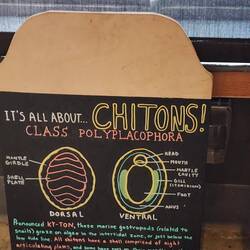 IT'S ALL ABOUT... CHITONS!
CLASS POLYPLACOPHORA
MANTLE GIRDLE
SHELL PLATE
HEAD
MOUTH
MANTLE CAVITY
GILL (CTENIDIUM)
FOOT
ANUS
DORSAL
VENTRAL
Pronounced KY-TON, these marine gastropods (related to
snails) graze on algae in the intertidal zone, or just below the
low tide line. All chitons have a shell comprised of eight
articulating plates, and some have